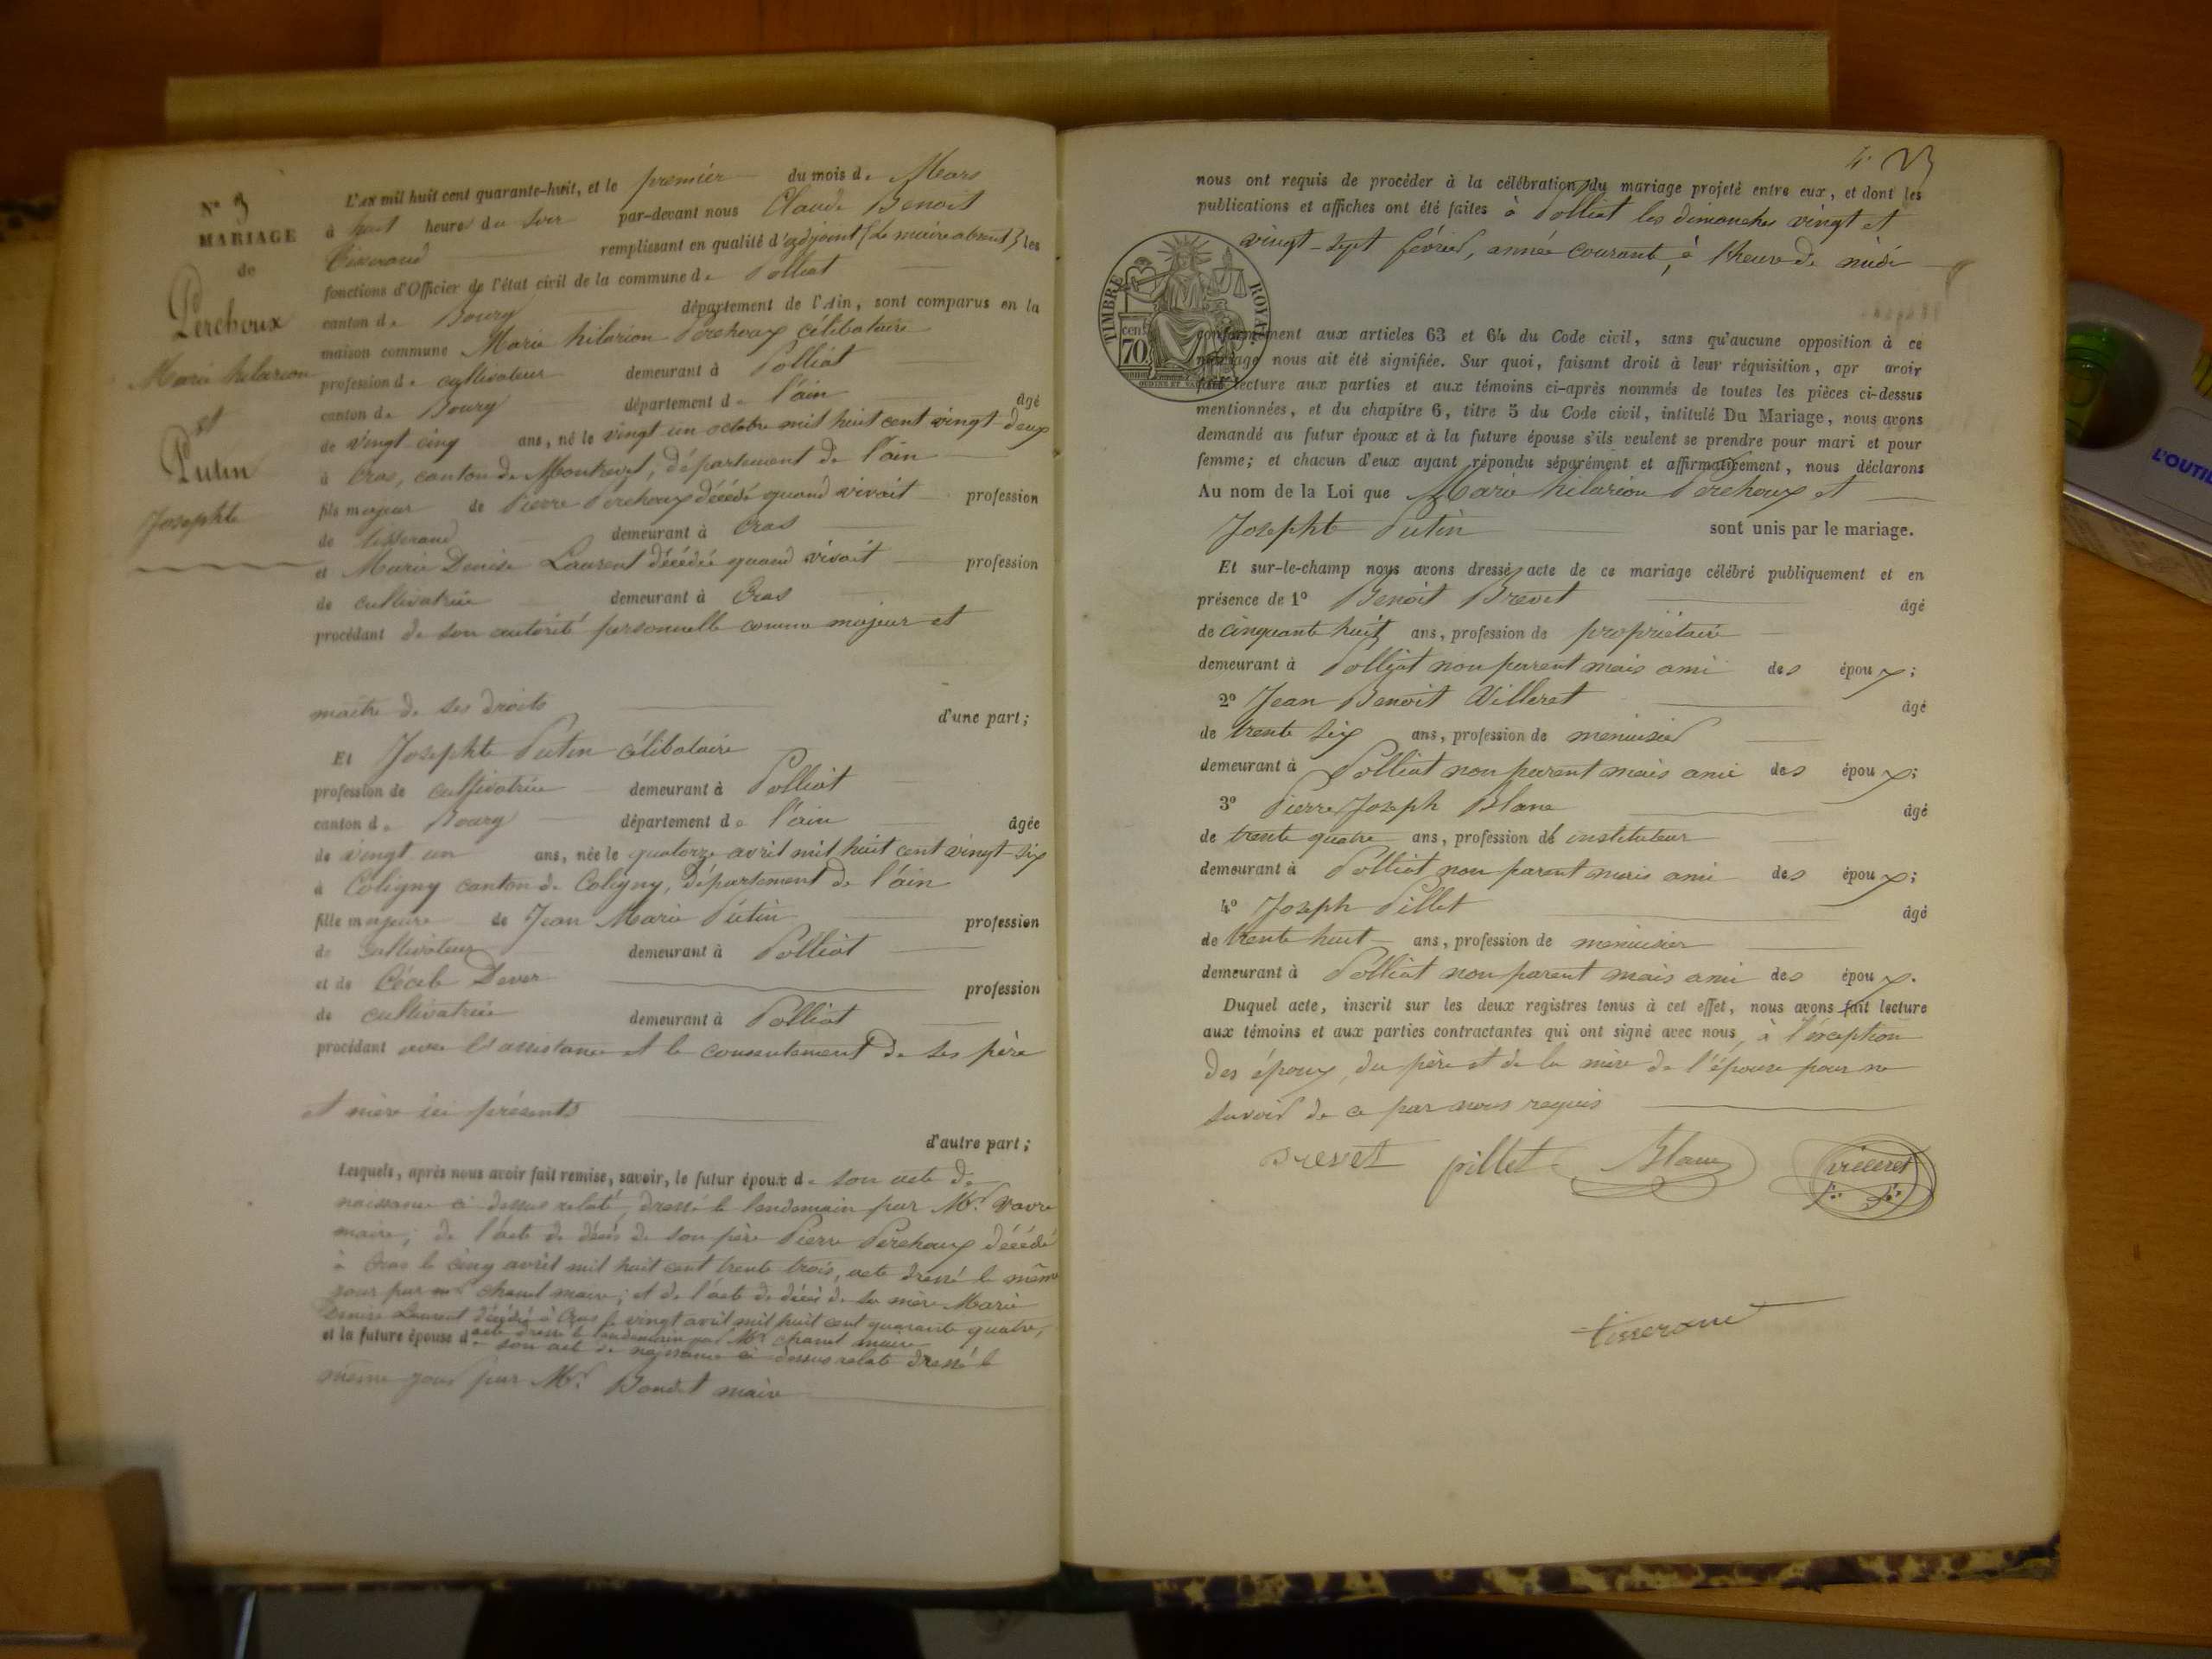 N° 3
MARIAGE
de
Perchoux
Marie hilarion
et
Putin
Josephte
L'AN mil huit cent quarante-huit, et le premier du mois de Mars
à huit heure du soir par-devant nous Claude Benoit
Tisserand remplissant en qualité d'adjoint (le maire absent) les
fonctions d'Officier de l'état civil de la commune de Polliat
canton de Bourg département de l'Ain, sont comparus en la
maison commune Marie hilarion Perchoux célibataire
profession de cultivateur demeurant à Polliat
canton de Bourg département de l'ain âgé
de vingt cinq ans, né le vingt un octobre mil huit cent vingt-deux
à Cras, canton de Montrevel, département de l'ain
fils majeur de Pierre Perchoux décédé quand vivait profession
de tisserand demeurant à Cras
et Marie Denise Laurent décédée quand vivait profession
de cultivatrice demeurant à Cras
procédant de son autorité personnelle comme majeur et
maître de ses droits d'une part;
Et Josephte Putin célibataire
profession de cultivatrice demeurant à Polliat
canton de Bourg département de l'ain âgée
de vingt un ans, née le quatorze avril mil huit cent vingt-six
à Coligny canton de Coligny, département de l'ain
fille majeure de Jean Marie Putin profession
de cultivateur demeurant à Polliat
et de Cécile Dever profession
de cultivatrice demeurant à Polliat
procédant avec l'assistance et le consentement de ses père
et mère ici présents
d'autre part;
Lesquels, après nous avoir fait remise, savoir, le futur époux de son acte de
naissance ci dessus relaté, dressé le lendemain par Mr. Vavre
maire; de l'acte de décès de son père Pierre Perchoux décédé
à Cras le cinq avril mil huit cent trente trois, acte dressé le même
jour par mr chanel maire; et de l'acte de décès de sa mère Marie
Denise Laurent décédée à Cras le vingt avril mil huit cent quarante quatre,
acte dressé le lendemain par Mr chanel maire
et la future épouse de son acte de naissance ci dessus relaté dressé le
même jour par Mr. Bondet maire
4. 
nous ont requis de procéder à la célébration du mariage projeté entre eux, et dont les
publications et affiches ont été faites à Polliat les dimanches vingt et
vingt-sept février, année courante, à l'heure de midi
TIMBRE ROYAL
cen. 70
conformément aux articles 63 et 64 du Code civil, sans qu'aucune opposition à ce
mariage nous ait été signifiée. Sur quoi, faisant droit à leur réquisition, apr avoir
fait lecture aux parties et aux témoins ci-après nommés de toutes les pièces ci-dessus
mentionnées, et du chapitre 6, titre 5 du Code civil, intitulé Du Mariage, nous avons
demandé au futur époux et à la future épouse s'ils veulent se prendre pour mari et pour
femme; et chacun d'eux ayant répondu séparément et affirmativement, nous déclarons
Au nom de la Loi que Marie hilarion Perchoux et
Josephte Putin sont unis par le mariage.
Et sur-le-champ nous avons dressé acte de ce mariage célébré publiquement et en
présence de 1° Benoît Brevet âgé
de cinquante huit ans, profession de propriétaire
demeurant à Polliat non parent mais ami des époux;
2° Jean Benoit Villeret âgé
de trente six ans, profession de menuisier
demeurant à Polliat non parent mais ami des époux;
3° Pierre Joseph Blanc âgé
de trente quatre ans, profession de instituteur
demeurant à Polliat non parent mais ami des époux;
4° Joseph Pillet âgé
de trente huit ans, profession de menuisier
demeurant à Polliat non parent mais ami des époux.
Duquel acte, inscrit sur les deux registres tenus à cet effet, nous avons fait lecture
aux témoins et aux parties contractantes qui ont signé avec nous, à l'éxception
des époux, du père et de la mère de l'épouse pour ne
savoir de ce par nous requis
Brevet pillet Blanc villeret
tisserand
L'OUTIL